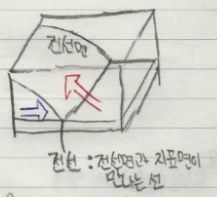 전선면
전선 : 전선면과 지표면이
만나는 선